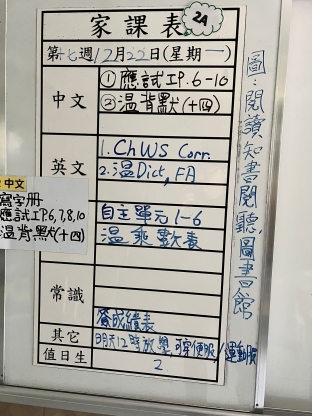 家課表
2A
第十七週12月22日(星期一)
中文
①應試IP.6-10
②溫背默(十四)
英文
1. ChWS Corr.
2. 溫Dict, FA
自主單元1-6
溫乘數表
常識
簽成績表
其它
明天12時放學,可穿便服/運動服
值日生
2
圖:閱讀知書閱聽,圖書館
中文
寫字册
應試IP.6,7,8,10
溫背默(十四)